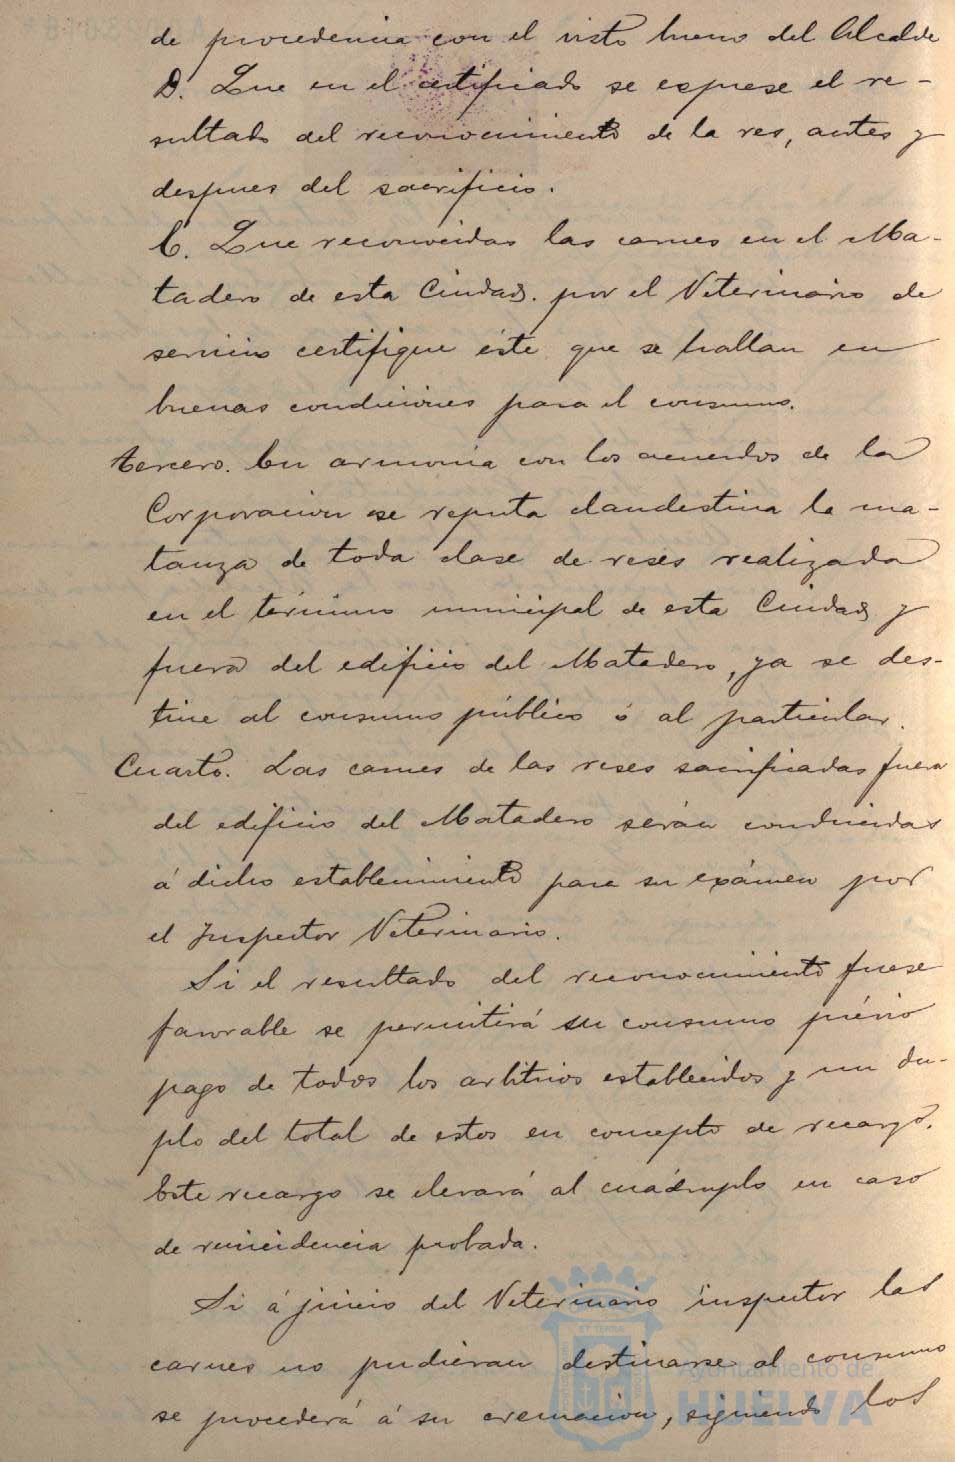 de procedencia con el visto bueno del Alcalde
D. Que en el certificado se esprese el re-
sultado del reconocimiento de la res, antes y
despues del sacrificio.
E. Que reconocidas las carnes en el Ma-
tadero de esta Ciudad. por el Veterinario de
servicio certifique éste que se hallan en
buenas condiciones para el consumo.
tercero. En armonia con los acuerdos de la
Corporacion se reputa clandestina la ma-
tanza de toda clase de reses realizada
en el término municipal de esta Ciudad y
fuera del edificio del Matadero, ya se des-
tine al consumo público ó al particular.
Cuarto. Las carnes de las reses sacrificadas fuera
del edificio del Matadero serán conducidas
á dicho establecimiento para su exámen por
el Inspector Veterinario.
Si el resultado del reconocimiento fuese
favorable se permitirá su consumo prévio
pago de todos los arbitrios establecidos y un du-
plo del total de estos en concepto de recargo.
Este recargo se elevará al cuádruplo en caso
de reincidencia probada.
Si á juicio del Veterinario inspector las
carnes no pudieran destinarse al consumo
se procederá á su cremacion, siguiendo los
Ayuntamiento de
HUELVA